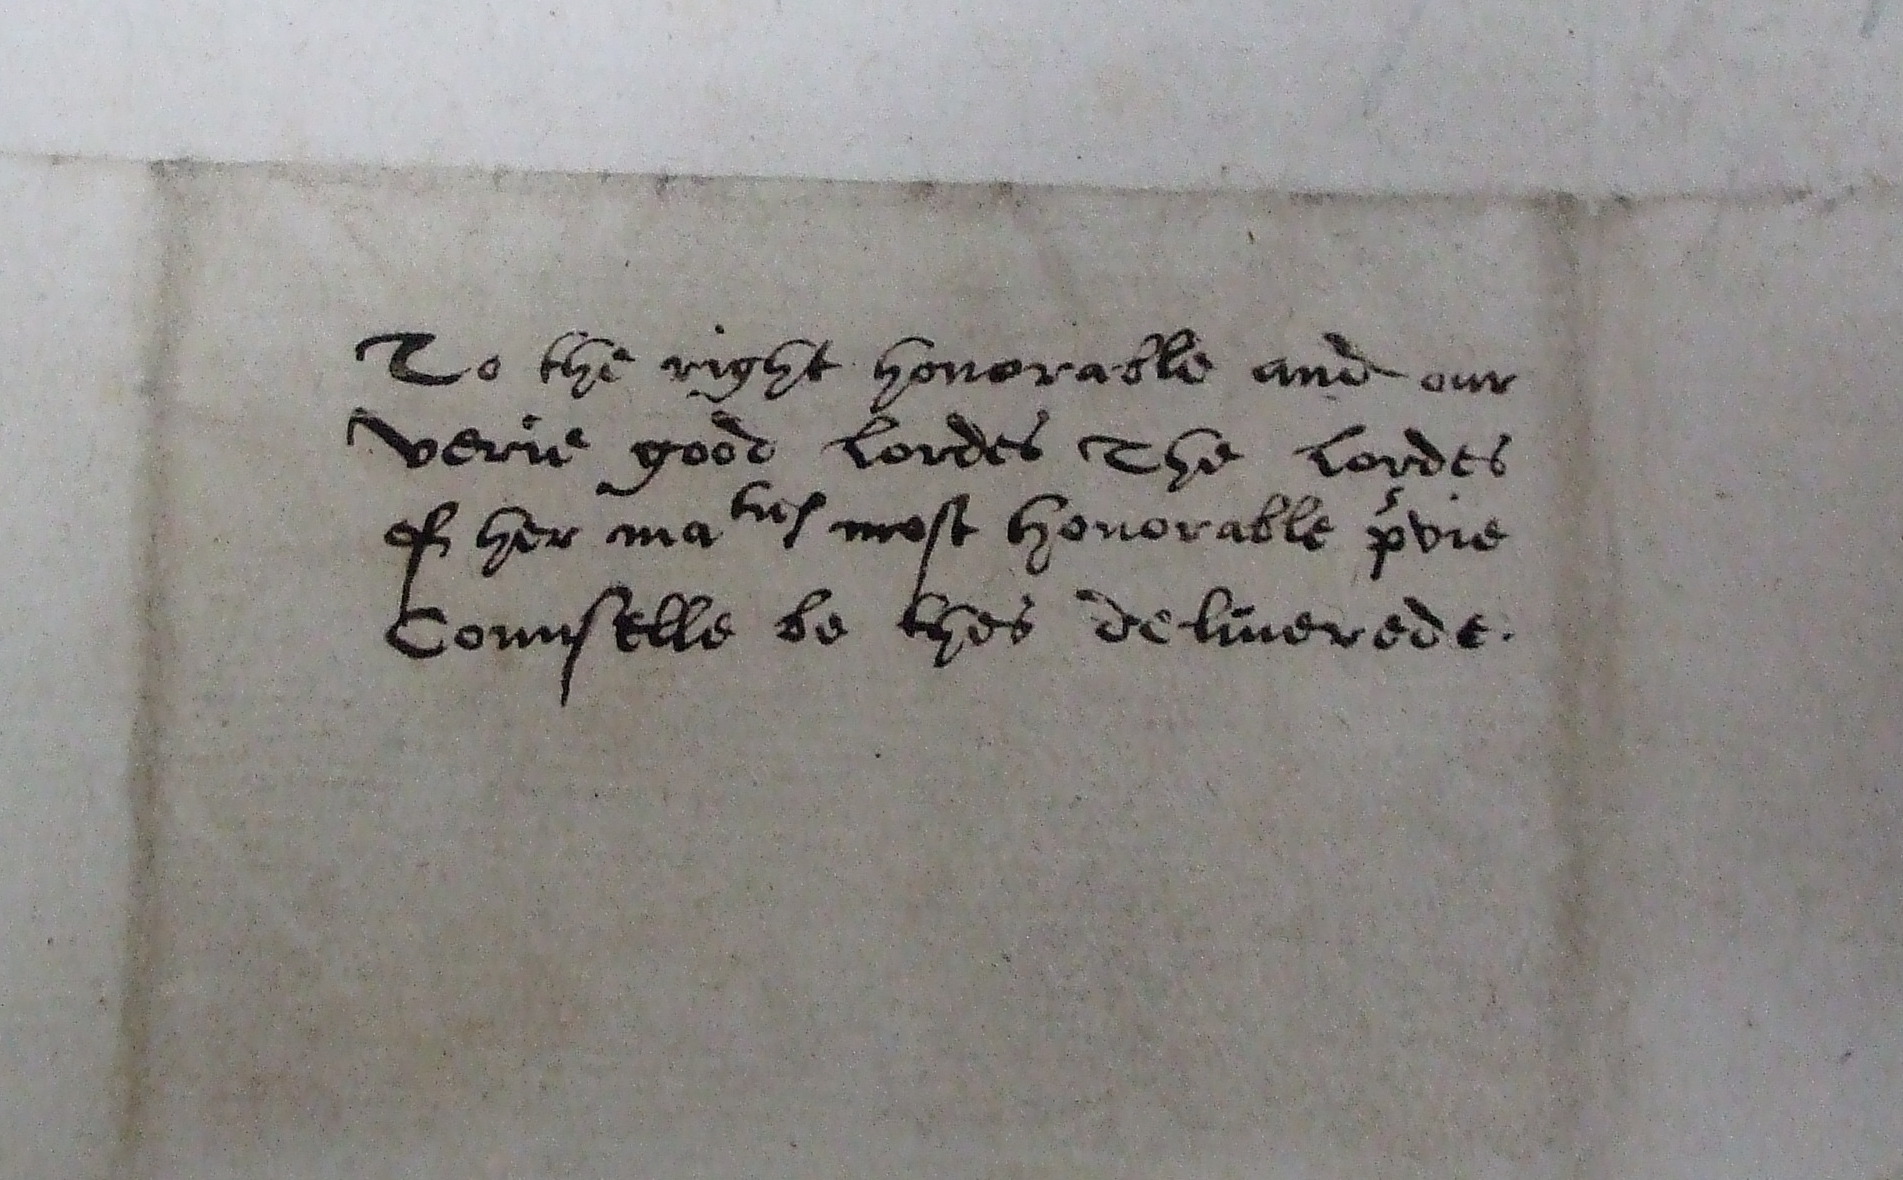 To the right honorable and our
verie good Lordes The Lordes
of her ma^ties most honorable p^rvie
Counselle be thes deliuerede.